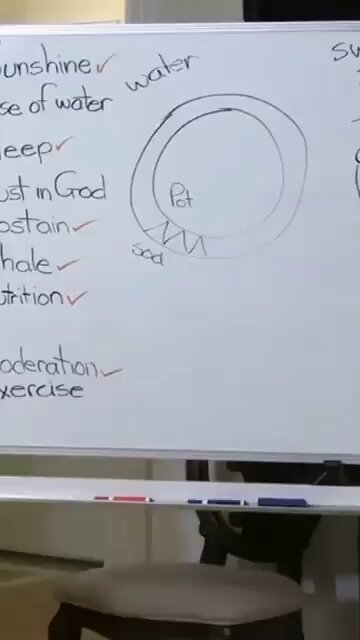 unshine✓
se of water
leep✓
ust in God
bstain✓
hale✓
utrition✓
oderation✓
xercise
water
Pot
Sod
su